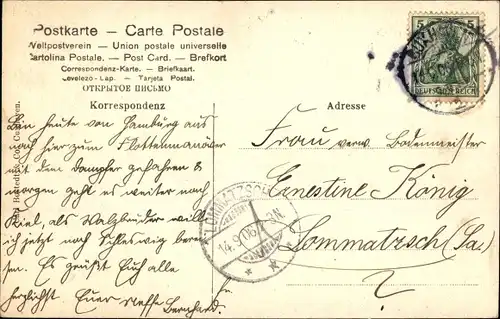 Postkarte – Carte Postale
Weltpostverein – Union postale universelle
Cartolina Postale. – Post Card. – Brefkort
Correspondenz-Karte. – Briefkaart.
Levelezo-Lap. – Tarjeta Postal.
ОТКРЫТОЕ ПИСЬМО
Korrespondenz
Bin heute von Hamburg aus
nach hier zum Flottenmanöver
mit dem Dampfer gefahren &
morgen geht es weiter nach
Kiel, als Walzbruder will
ich jetzt noch Schleswig berei-
sen. Es grüßt Euch alle
herzlichst Euer Neffe Bernhard.
Adresse
Frau verw. Bodenmeister
Ernestine König
Lommatzsch (Sa.)
5 5
DEUTSCHES REICH
LOMMATZSCH
14.9.06